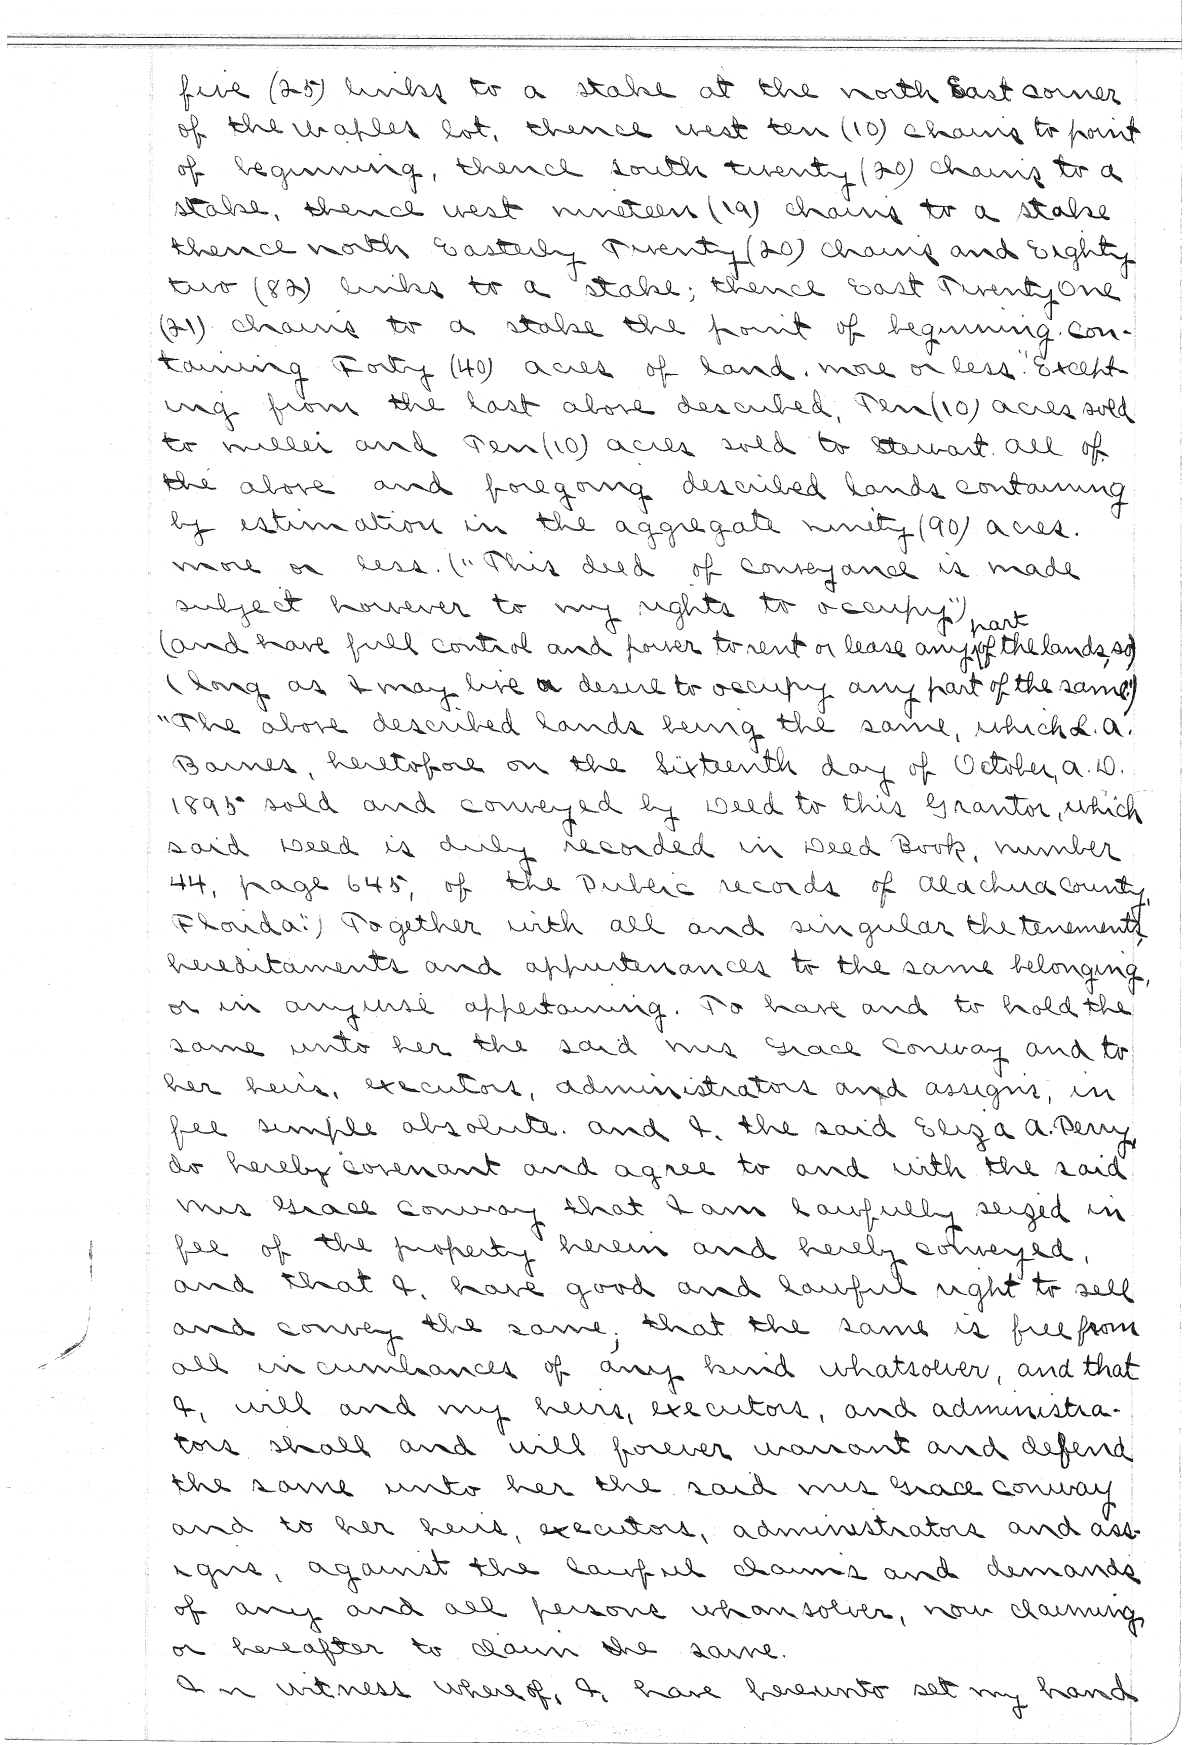 five (25) links to a stake at the north East corner
of the Waples lot, thence west ten (10) chains to point
of beginning, thence south twenty (20) chains to a
stake, thence west nineteen (19) chains to a stake
thence north Easterly Twenty (20) chains and Eighty
two (82) links to a stake; thence East Twenty One
(21) chains to a stake the point of beginning. Con-
taining Forty (40) acres of land. more or less." Except-
ing from the last above described, Ten (10) acres sold
to Miller and Ten (10) acres sold to Stewart. all of
the above and foregoing described lands containing
by estimation in the aggregate ninety (90) acres.
more or less. ("This deed of conveyance is made
subject however to my rights to occupy")
part
(and have full control and power to rent or lease any of the lands, so)
(long as I may live a desire to occupy any part of the same")
"The above described lands being the same, which L. A.
Barnes, heretofore on the Sixteenth day of October, A. D.
1895 sold and conveyed by Deed to this Grantor, which
said Deed is duly recorded in Deed Book, number
44, page 645, of the Public records of Alachua County,
Florida.") Together with all and singular the tenements,
hereditaments and appurtenances to the same belonging,
or in anywise appertaining. To have and to hold the
same unto her the said Mrs Grace Conway and to
her heirs, executors, administrators and assigns, in
fee simple absolute. and I, the said Eliza A. Perry,
do hereby covenant and agree to and with the said
Mrs Grace Conway that I am lawfully seized in
fee of the property herein and hereby conveyed,
and that I, have good and lawful right to sell
and convey the same; that the same is free from
all incumbrances of any kind whatsoever, and that
I, will and my heirs, executors, and administra-
tors shall and will forever warrant and defend
the same unto her the said Mrs Grace Conway
and to her heirs, executors, administrators and ass-
igns, against the lawful claims and demands
of any and all persons whomsoever, now claiming,
or hereafter to claim the same.
In witness whereof, I, have hereunto set my hand